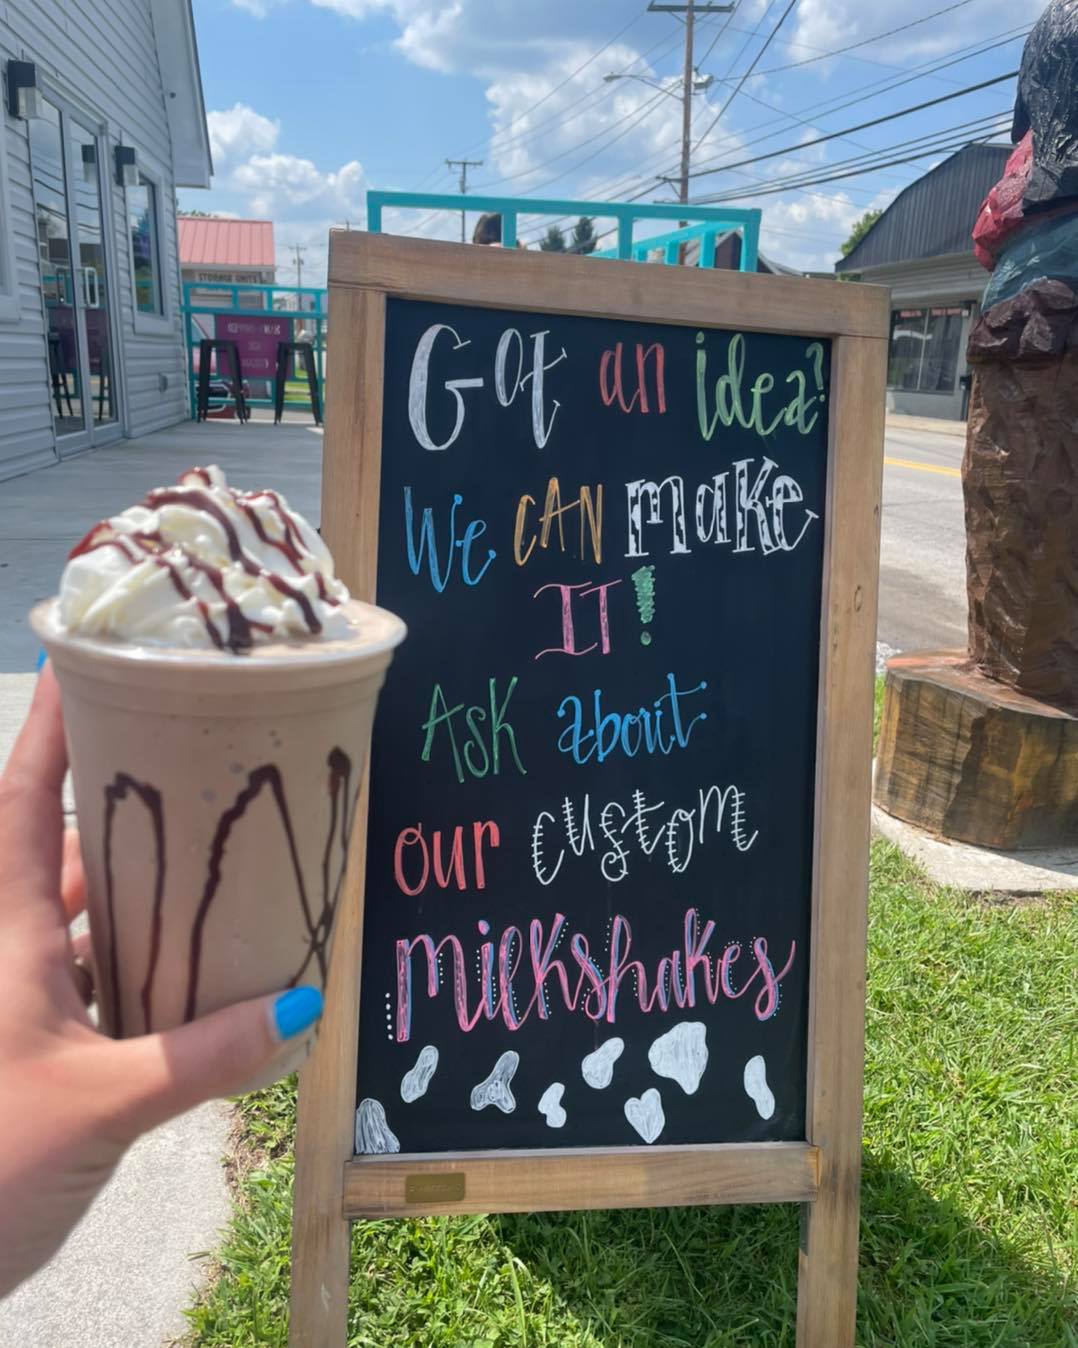 STORAGE UNITS
Got an idea?
We CAN make
IT!
Ask about
our custom
milkshakes